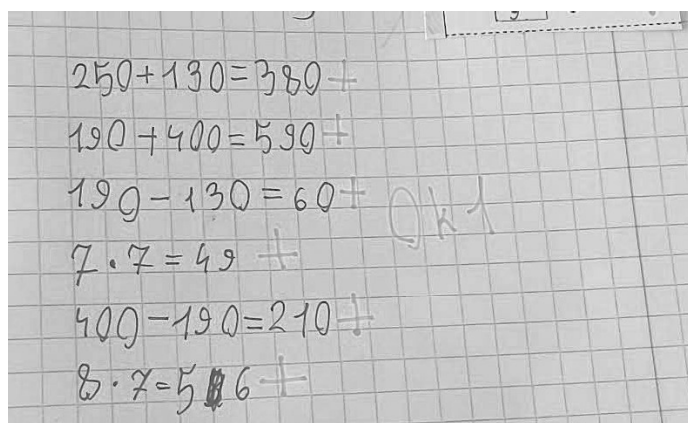 250+130=380 +
190+400=590 +
190-130=60 +
7·7=49 +
400-190=210 +
8·7=56 +